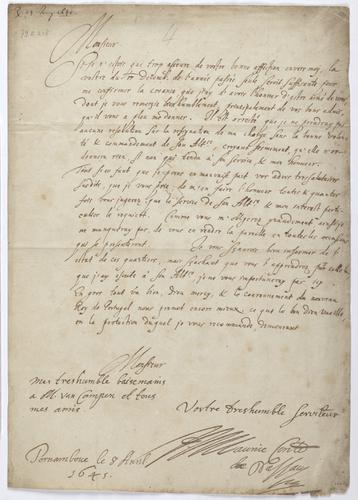 4
Monsieur
Si je n'estois que trop asseuré de vostre bonne affection envers moy, la
vostre du Decemb. de l'année passée seule seroit suffisante pour
me confirmer la creance que j'ay d'avoir l'honneur d'estre aimé de vous
dont je vous remercie treshumblement, principalement de vos bons advis
qu'il vous a pleu me donner. Il est arresté que je ne prendray pas
aucune resolution sur la resignation de ma charge sans la bonne volon-
té & commandement de Son Altce, croyant fermement, qu'elle n'or-
donnera rien, si non qui tendra à son service, & mon honneur.
Tout seu faut que je prens en mauvaise part vos advis tressalutaires
susdits, que je vous prie, de m'en faire l'honneur toutes & quantes
fois vous jugerez que le service de Son Altce & mon interest parti-
culier le requiert. Comme vous m'obligerez grandement, aussi je
ne manqueray pas, de vous en rendre la pareille en toutes les occasions
qui se presenteront. Je vous pourrois bien informer de l'
estat de ces quartiers, mais sachant que vous l'apprendrez par celle là
que j'ay escrite à Son Altce, je ne vous importuneray par icy
En gros tout va bien, Dieu mercy, & le couronnement du nouveau
Roy de Portugal nous promet encore mieux, ce que le bon Dieu veuille,
en la protection duquel je vous recommande, demeurant
Monsieur
mes treshumble baisemains
a M. van Campen et tous
mes amis.
Vostre treshumble serviteur
Maurice Conte
de Nassau
Pernambouc le 8 Avril
1641.